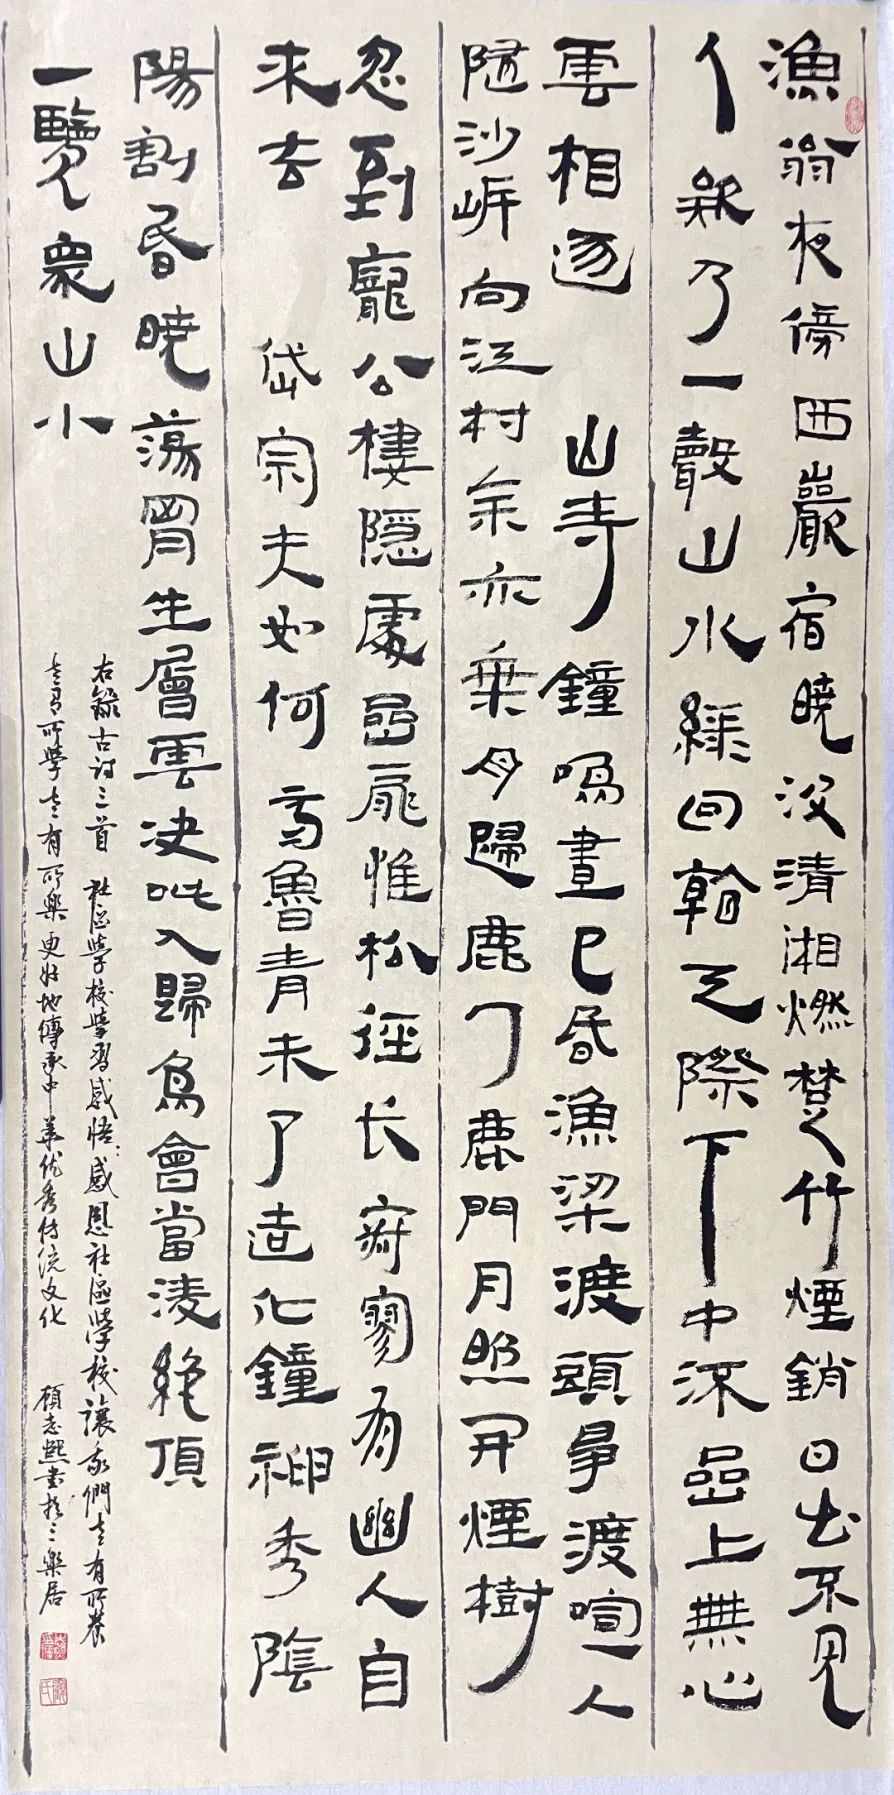 漁翁夜傍西巖宿曉汲清湘燃楚竹煙銷日出不見
人欸乃一聲山水綠回看天際下中流嵒上無心
雲相逐 山寺鐘鳴晝已昏漁梁渡頭爭渡喧人
隨沙岸向江村余亦乘舟歸鹿门鹿門月照開煙樹
忽到龐公棲隱處嵒扉惟松徑长寂寥有幽人自
来去 岱宗夫如何齊魯青未了造化鐘神秀陰
陽割昏曉蕩胷生層雲决眥入歸鳥會當凌絕頂
一覽衆山小
右錄古詩三首 社區學校學習感悟:感恩社區學校讓我們老有所養
老有所學老有所樂更好地傳承中華优秀传统文化 顧志熙書於三樂居